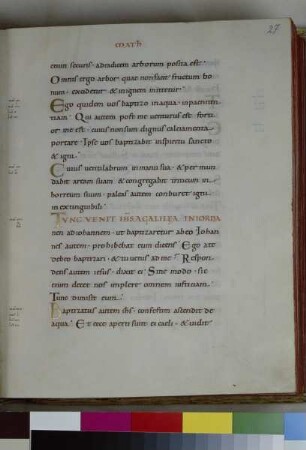 27
MATH
enim securis ad radicem arborum posita est.
Omnis ergo arbor quae non facit fructum bo
num, excidetur & in ignem mittetur.
Ego quidem vos baptizo in aqua in paeniten
tiam. Qui autem post me venturus est, for
tior me est cuius non sum dignus calciamenta
portare. Ipse vos baptizabit in spiritu sancto
& igni.
Cuius ventilabrum in manu sua & per mun
dabit aream suam & congregabit triticum in
horreum suum, paleas autem conburet igni
inextinguibili.
TUNC VENIT IHS A GALILEA IN IORDA
nen ad iohannem, ut baptizaretur ab eo. Iohan
nes autem prohibebat eum dicens; Ego a te
debeo baptizari, & tu venis ad me? Respon
dens autem ihesus, dixit ei. Sine modo, sic
enim decet nos implere omnem iustitiam.
Tunc dimisit eum.
Baptizatus autem ihs, confestim ascendit de
aqua. Et ecce aperti sunt ei caeli, & vidit